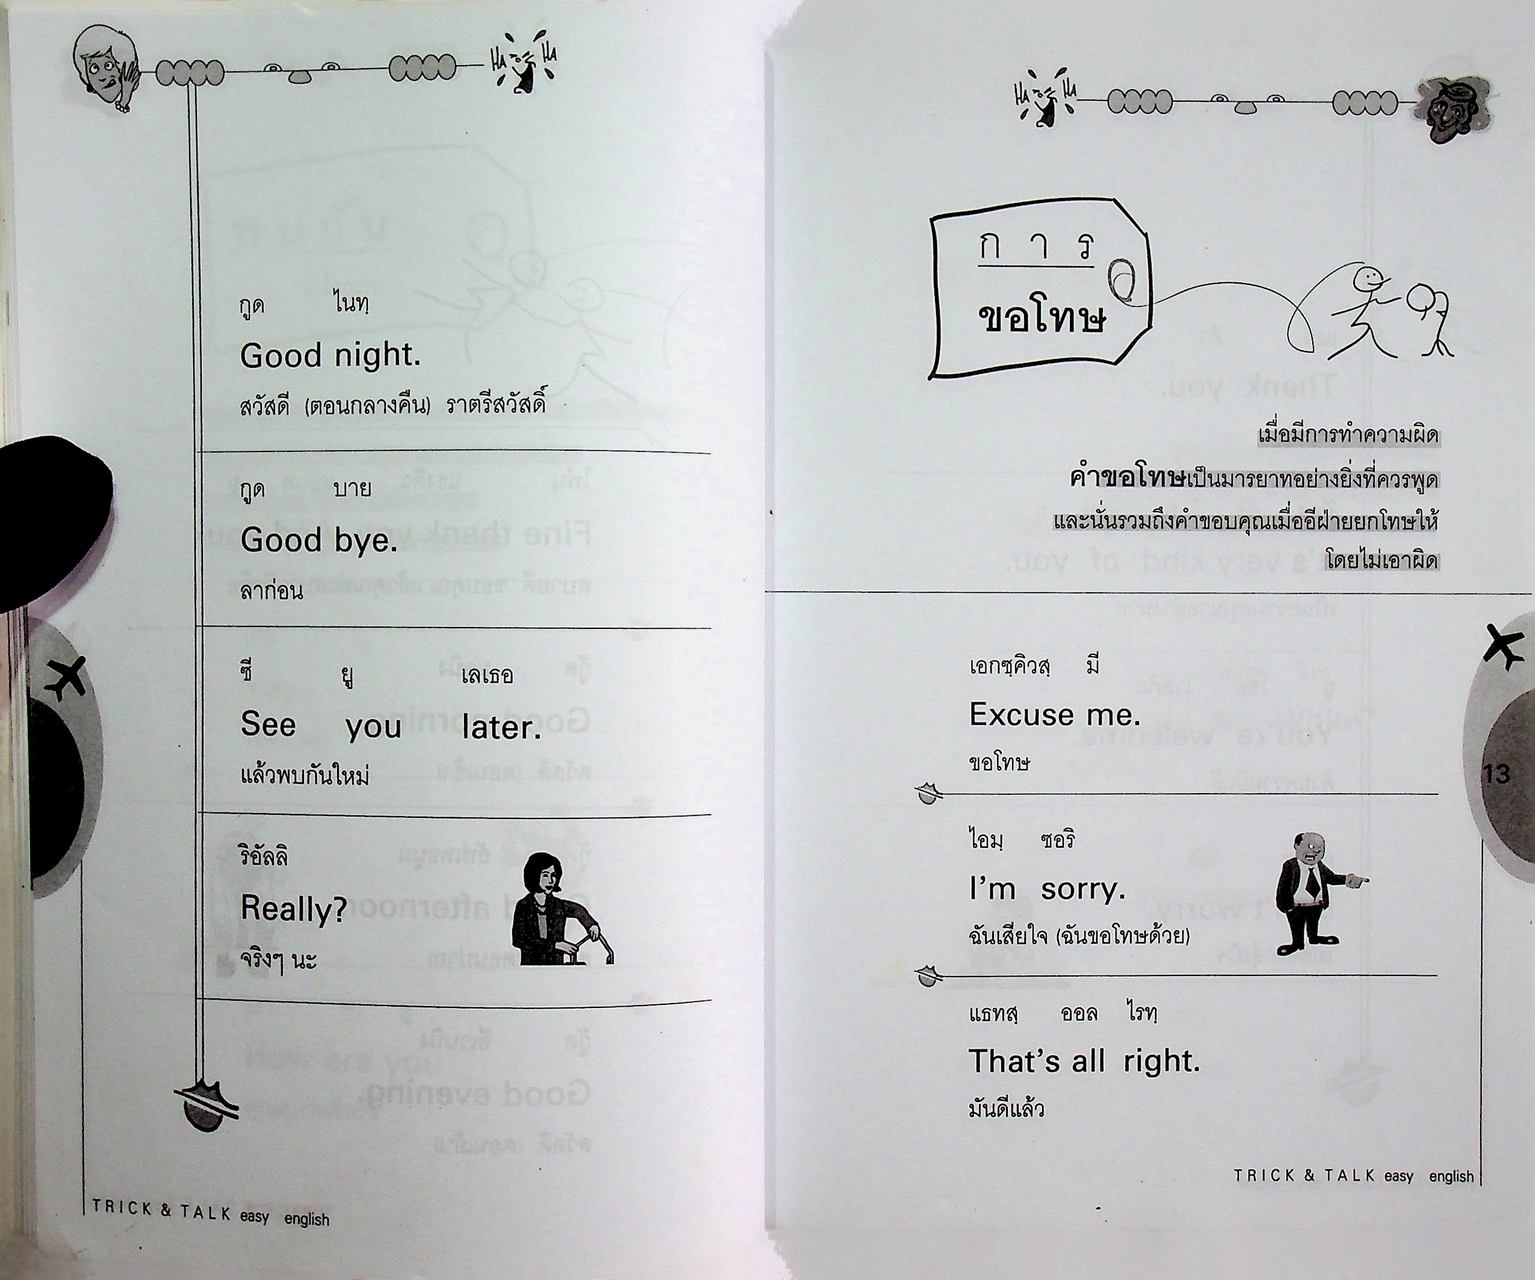 HA HA
กูด ไนทฺ
Good night.
สวัสดี (ตอนกลางคืน) ราตรีสวัสดิ์
กูด บาย
Good bye.
ลาก่อน
ซี ยู เลเธอ
See you later.
แล้วพบกันใหม่
ริอัลลิ
Really?
จริงๆ นะ
TRICK & TALK easy english
HA HA
การ
ขอโทษ
เมื่อมีการทำความผิด
คำขอโทษเป็นมารยาทอย่างยิ่งที่ควรพูด
และนั่นรวมถึงคำขอบคุณเมื่ออีฝ่ายยกโทษให้
โดยไม่เอาผิด
เอกซฺคิวสฺ มี
Excuse me.
ขอโทษ
13
ไอมฺ ซอริ
I'm sorry.
ฉันเสียใจ (ฉันขอโทษด้วย)
แธทสฺ ออล ไรทฺ
That's all right.
มันดีแล้ว
TRICK & TALK easy english